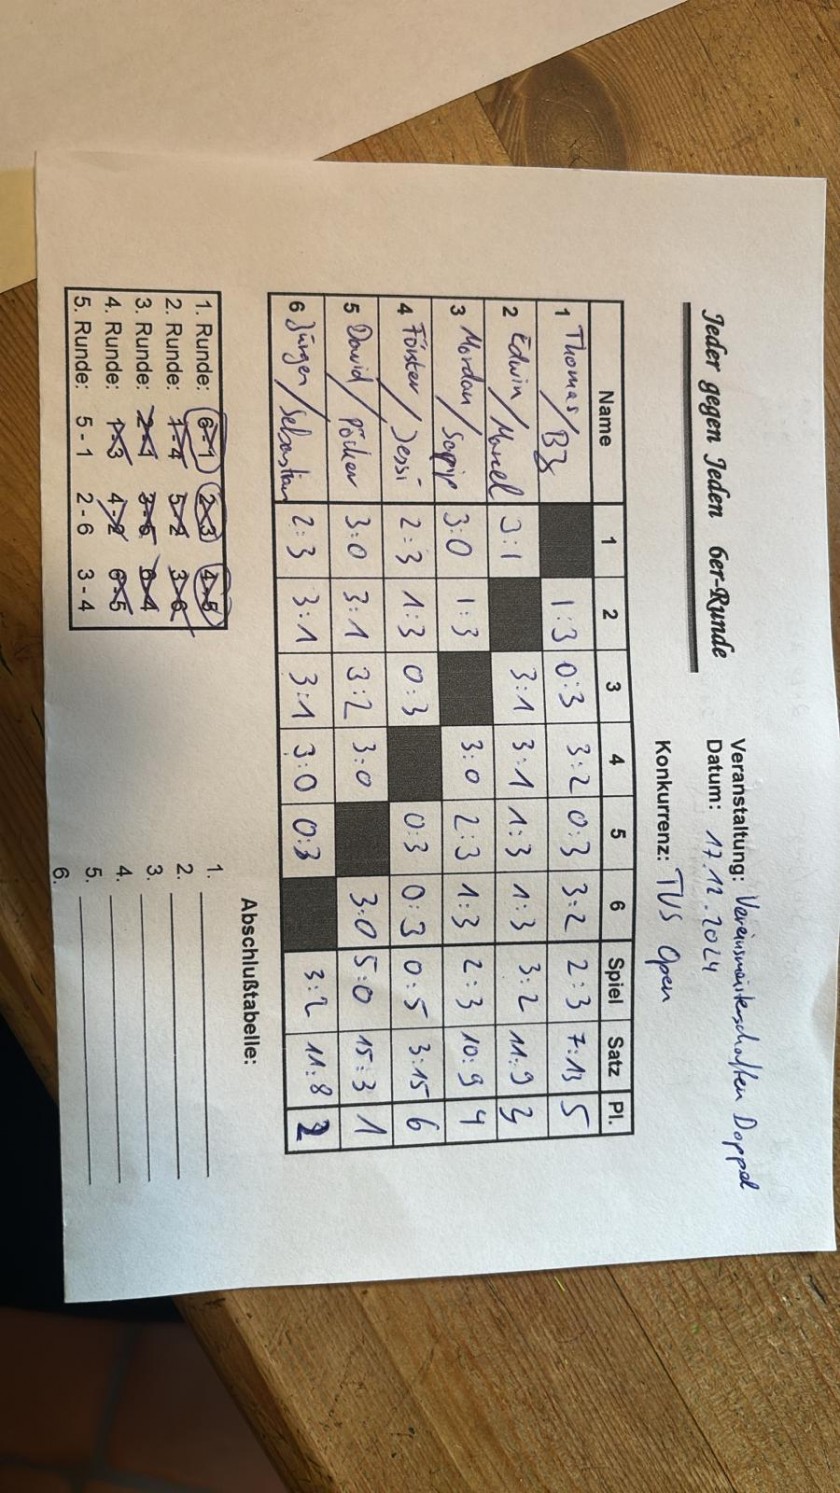 Jeder gegen Jeden 6er-Runde
Veranstaltung: Vereinsmeisterschaften Doppel
Datum: 17.12.2024
Konkurrenz: TVS Open
Name 1 2 3 4 5 6 Spiel Satz Pl.
1 Thomas/BZ 1:3 0:3 3:2 0:3 3:2 2:3 7:13 5
2 Edwin/Marcel 3:1 3:1 3:1 1:3 1:3 3:2 11:9 3
3 Mordan/ 3:0 1:3 3:0 2:3 1:3 2:3 10:9 4
4 Förster/Jessi 2:3 1:3 0:3 0:3 0:3 0:5 3:15 6
5 David/Pöcker 3:0 3:1 3:2 3:0 3:0 5:0 15:3 1
6 Jürgen/Sebastian 2:3 3:1 3:1 3:0 0:3 3:2 11:8 2
1. Runde: 6-1 2-3 4-5
2. Runde: 1-4 5-2 3-6
3. Runde: 2-1 3-5 6-4
4. Runde: 1-3 4-2 6-5
5. Runde: 5-1 2-6 3-4
Abschlußtabelle:
1.
2.
3.
4.
5.
6.